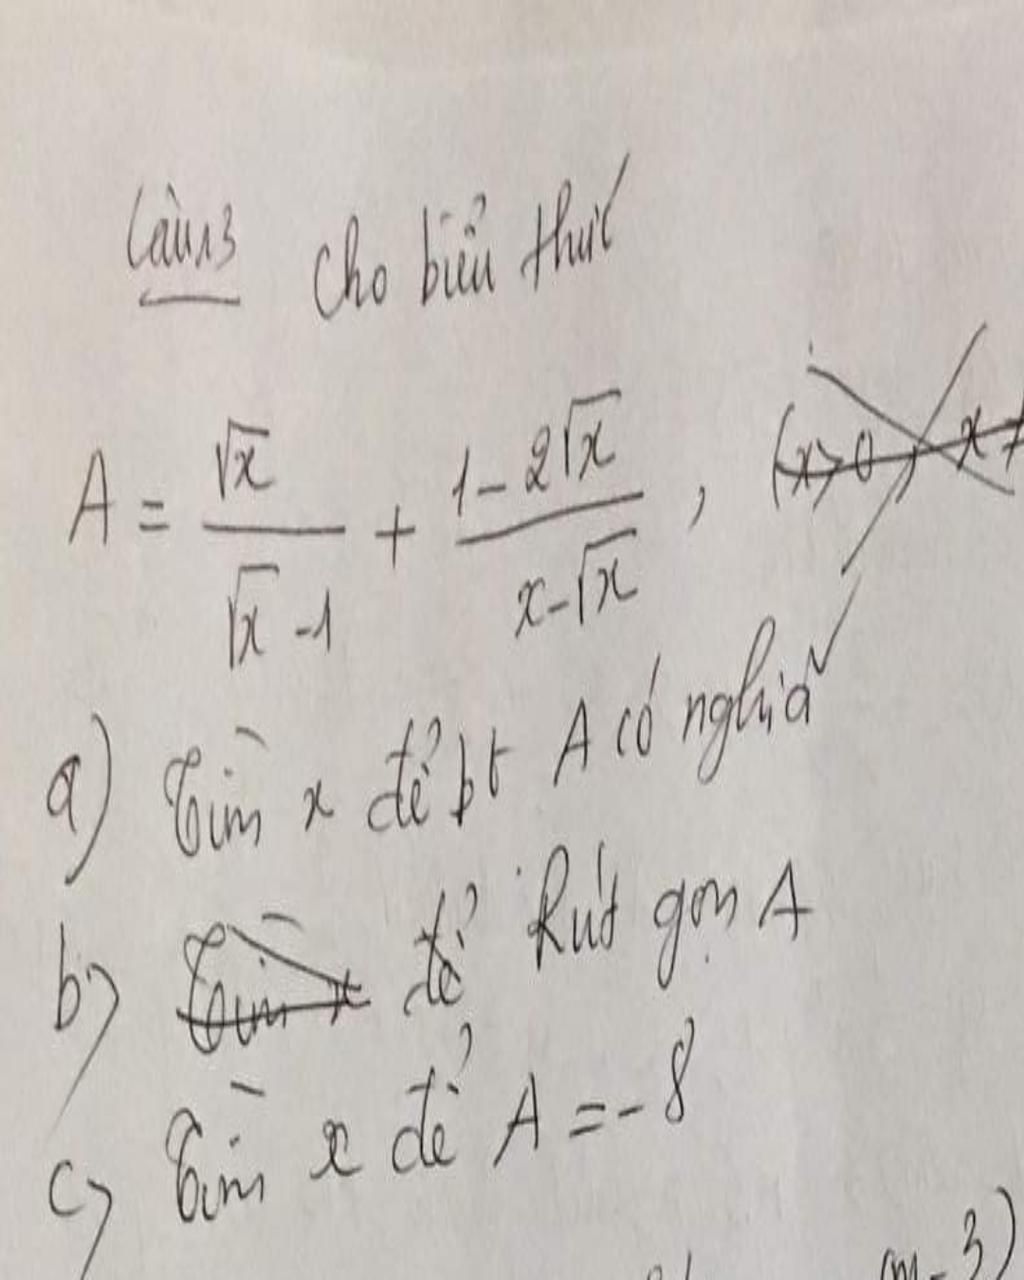 Câu 3 Cho biểu thức
A = √x / (√x - 1) + (1 - 2√x) / (x - √x) , (x > 0, x ≠
a) Tìm x để bt A có nghĩa
b) Tìm x để Rút gọn A
c) Tìm x để A = -8
m - 3)